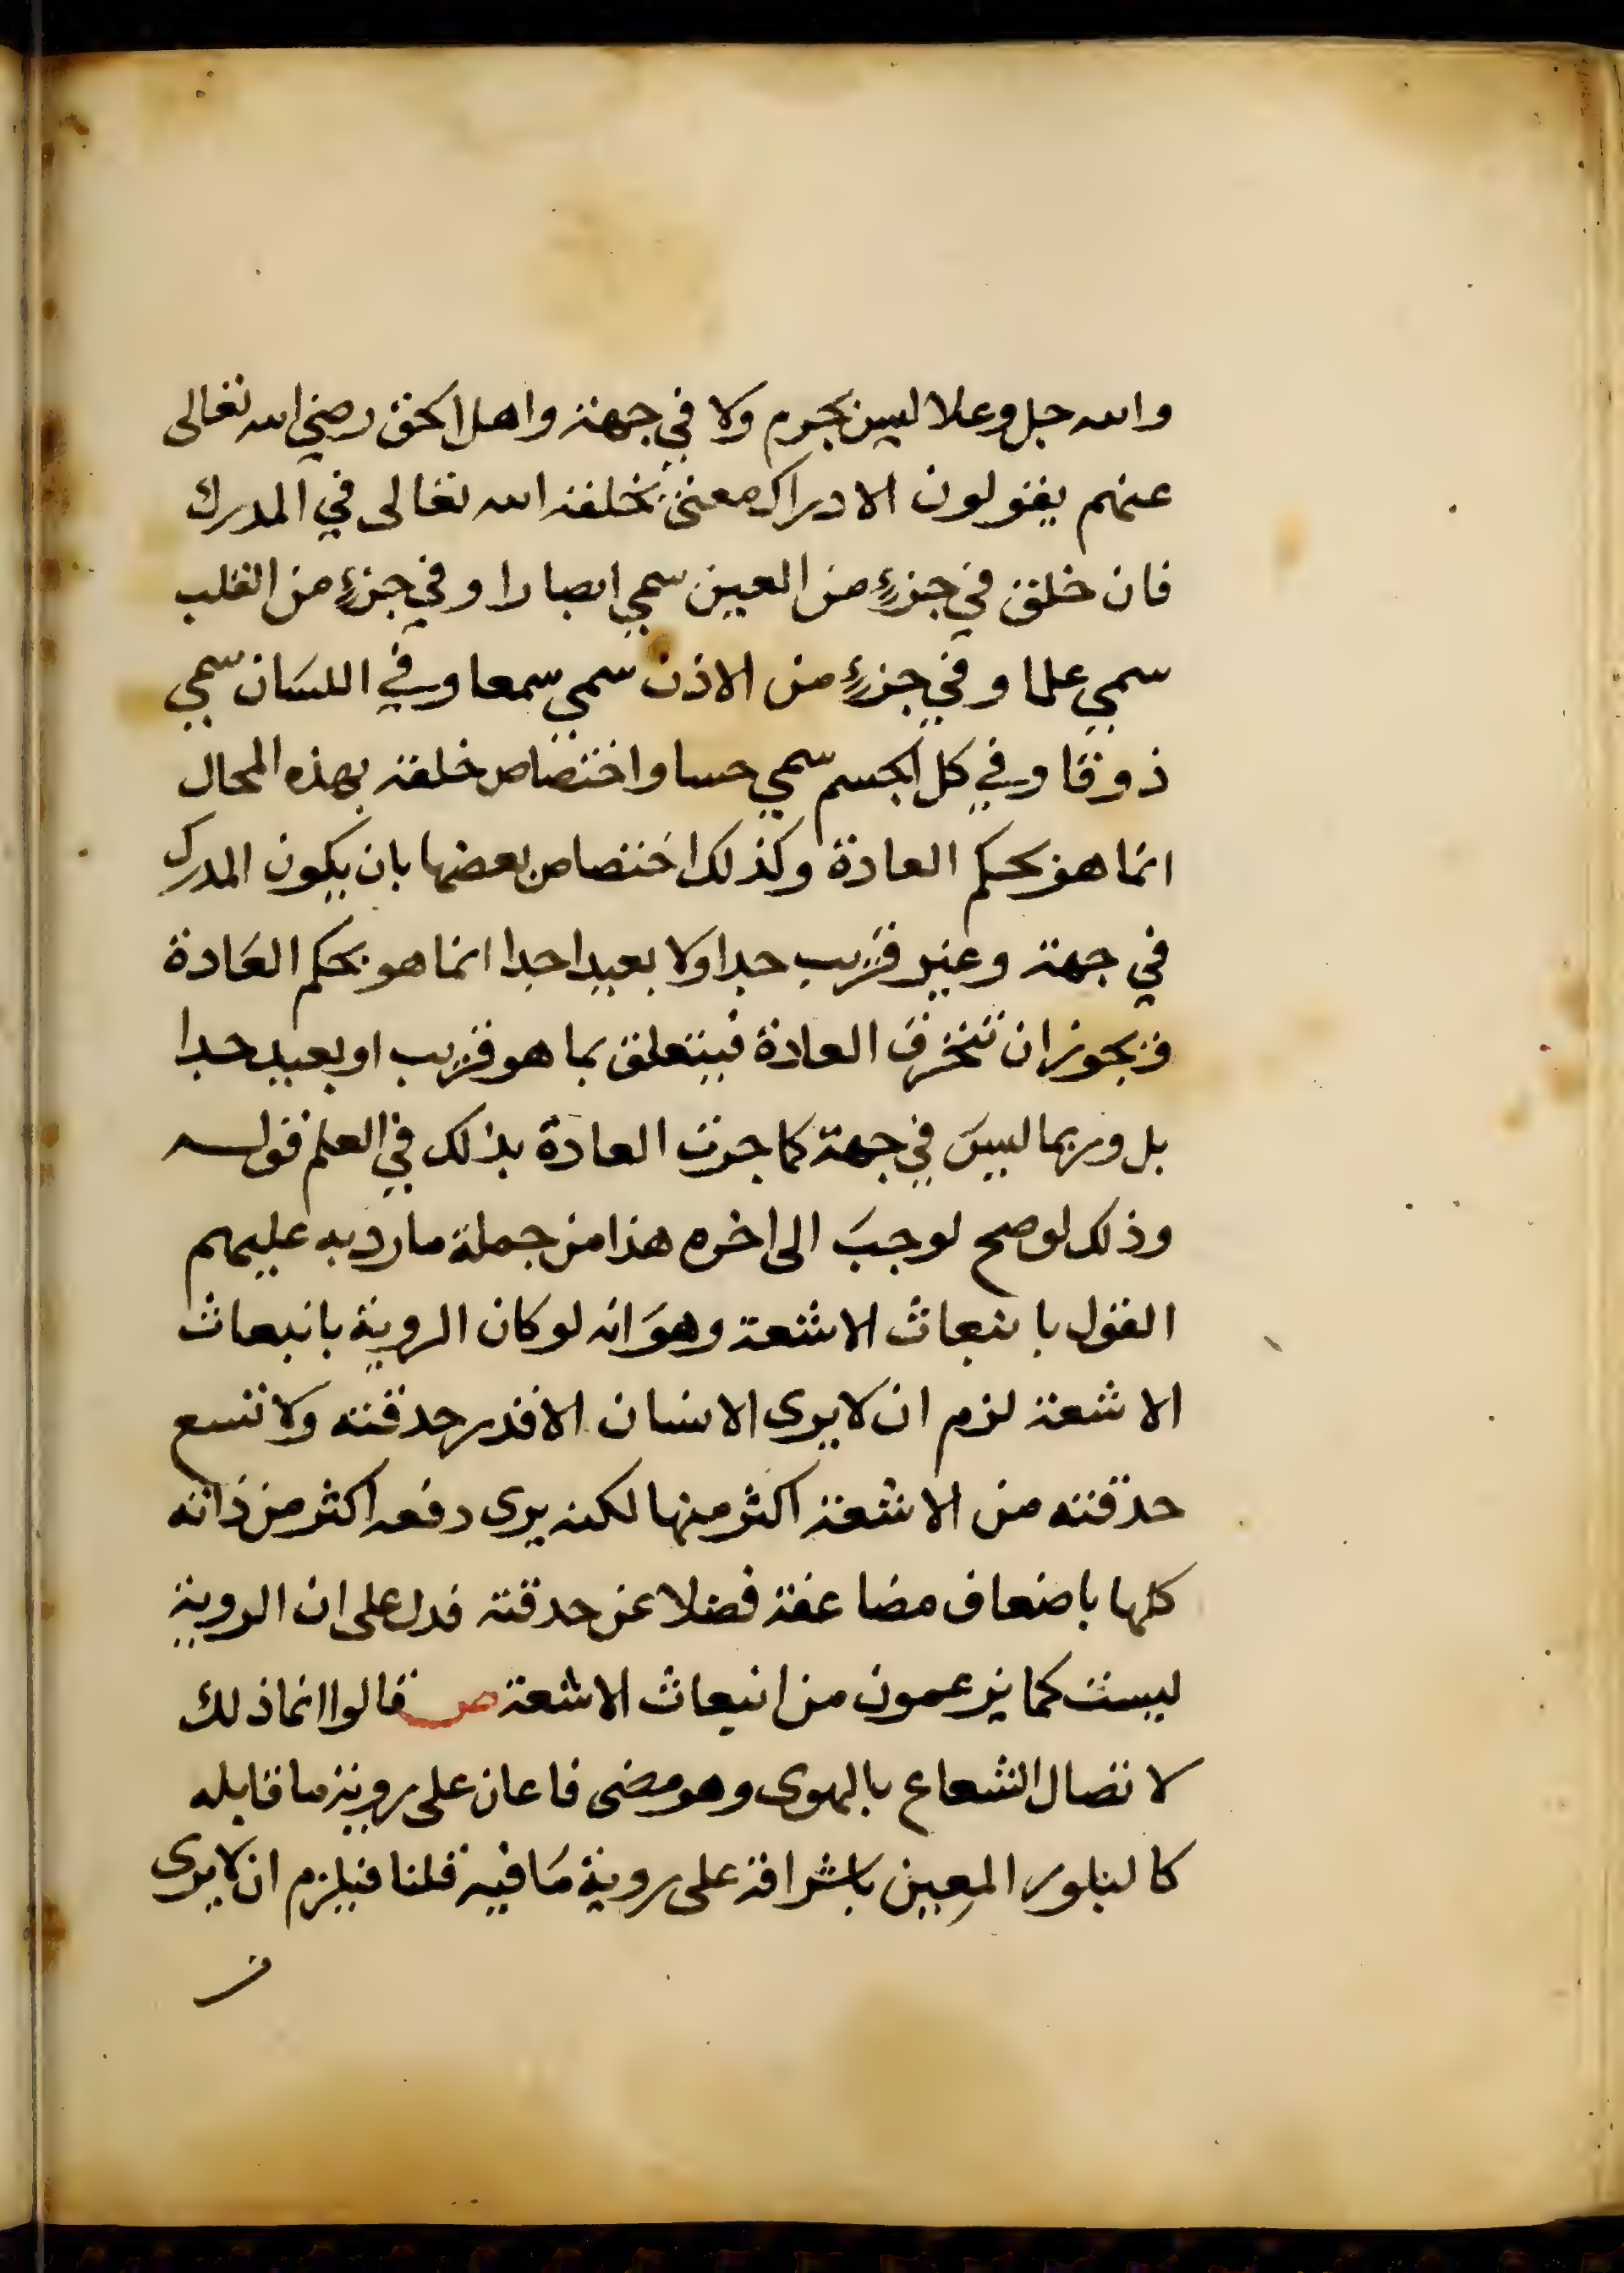 والله جل وعلا ليس بجرم ولا في جهة واهل الحق رضي الله تعالى
عنهم يقولون الادراك معنى يخلقه الله تعالى في المدرك
فان خلق في جزءٍ من العين سمي ابصارا وفي جزءٍ من القلب
سمي علما وفي جزءٍ من الاذن سمي سمعا وفي اللسان سمي
ذوقا وفي كل الجسم سمي حسا واختصاص خلقه بهذه المحال
انما هو بحكم العادة وكذلك اختصاص بعضها بان يكون المدرك
في جهة وغير قريب جدا ولا بعيدا جدا انما هو بحكم العادة
فيجوز ان تنخرق العادة فيتعلق بما هو قريب او بعيد جدا
بل وبما ليس في جهة كما جرت العادة بذلك في العلم قوله
وذلك لو صح لوجب الى اخره هذا من جملة ما رد به عليهم
القول بانبعاث الاشعة وهو انه لو كان الروية بانبعاث
الاشعة لزم ان لا يرى الانسان الا قدر حدقته ولا تسع
حدقته من الاشعة اكثر منها لكنه يرى دفعه اكثر من ذاته
كلها باضعاف مضاعفة فضلا عن حدقته فدل على ان الروية
ليست كما يزعمون من انبعاث الاشعة ص قالوا انما ذلك
لاتصال الشعاع بالهوى وهو مضى فاعان على روية ما قابله
كالبلور المعين باشراقه على روية ما فيه قلنا فيلزم ان لا يرى